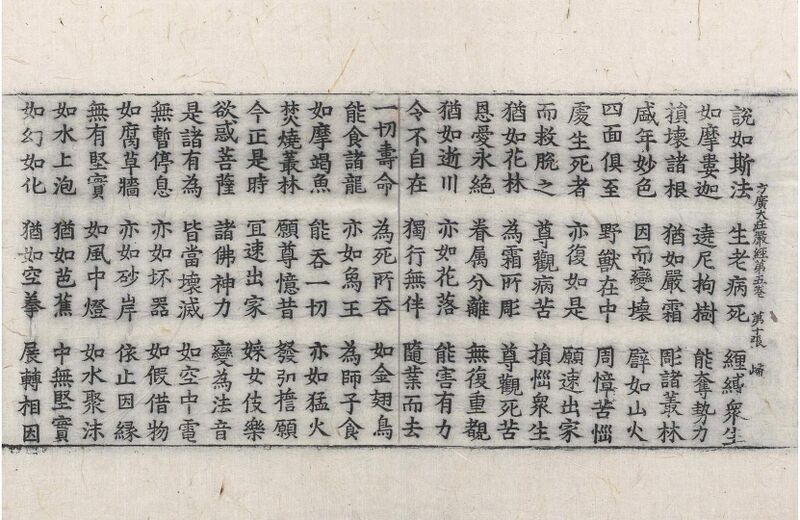 說如斯法 生老病死 纏縛衆生
方廣大莊嚴經第五卷 第十張
如摩婁迦 遶尼拘樹 能奪勢力
損壞諸根 猶如嚴霜 彫諸叢林
盛年妙色 因而變壞 譬如山火
四面俱至 野獸在中 周慞苦惱
處生死者 亦復如是 願速出家
而救脫之 尊觀病苦 損惱衆生
猶如花林 為霜所彫 尊觀死苦
恩愛永絕 眷属分離 無復重覩
猶如逝川 亦如花落 能害有力
令不自在 獨行無伴 隨業而去
一切壽命 為死所吞 如金翅鳥
能食諸龍 亦如象王 為師子食
如摩竭魚 能吞一切 亦如猛火
焚燒叢林 願尊憶昔 發弘誓願
今正是時 冝速出家 婇女伎樂
欲惑菩薩 諸佛神力 變為法音
是諸有為 皆當壞滅 如空中電
無暫停息 亦如坏器 如假借物
如腐草牆 亦如砂岸 依止因緣
無有堅實 如風中燈 如水聚沫
如水上泡 猶如芭蕉 中無堅實
如幻如化 猶如空拳 展轉相因